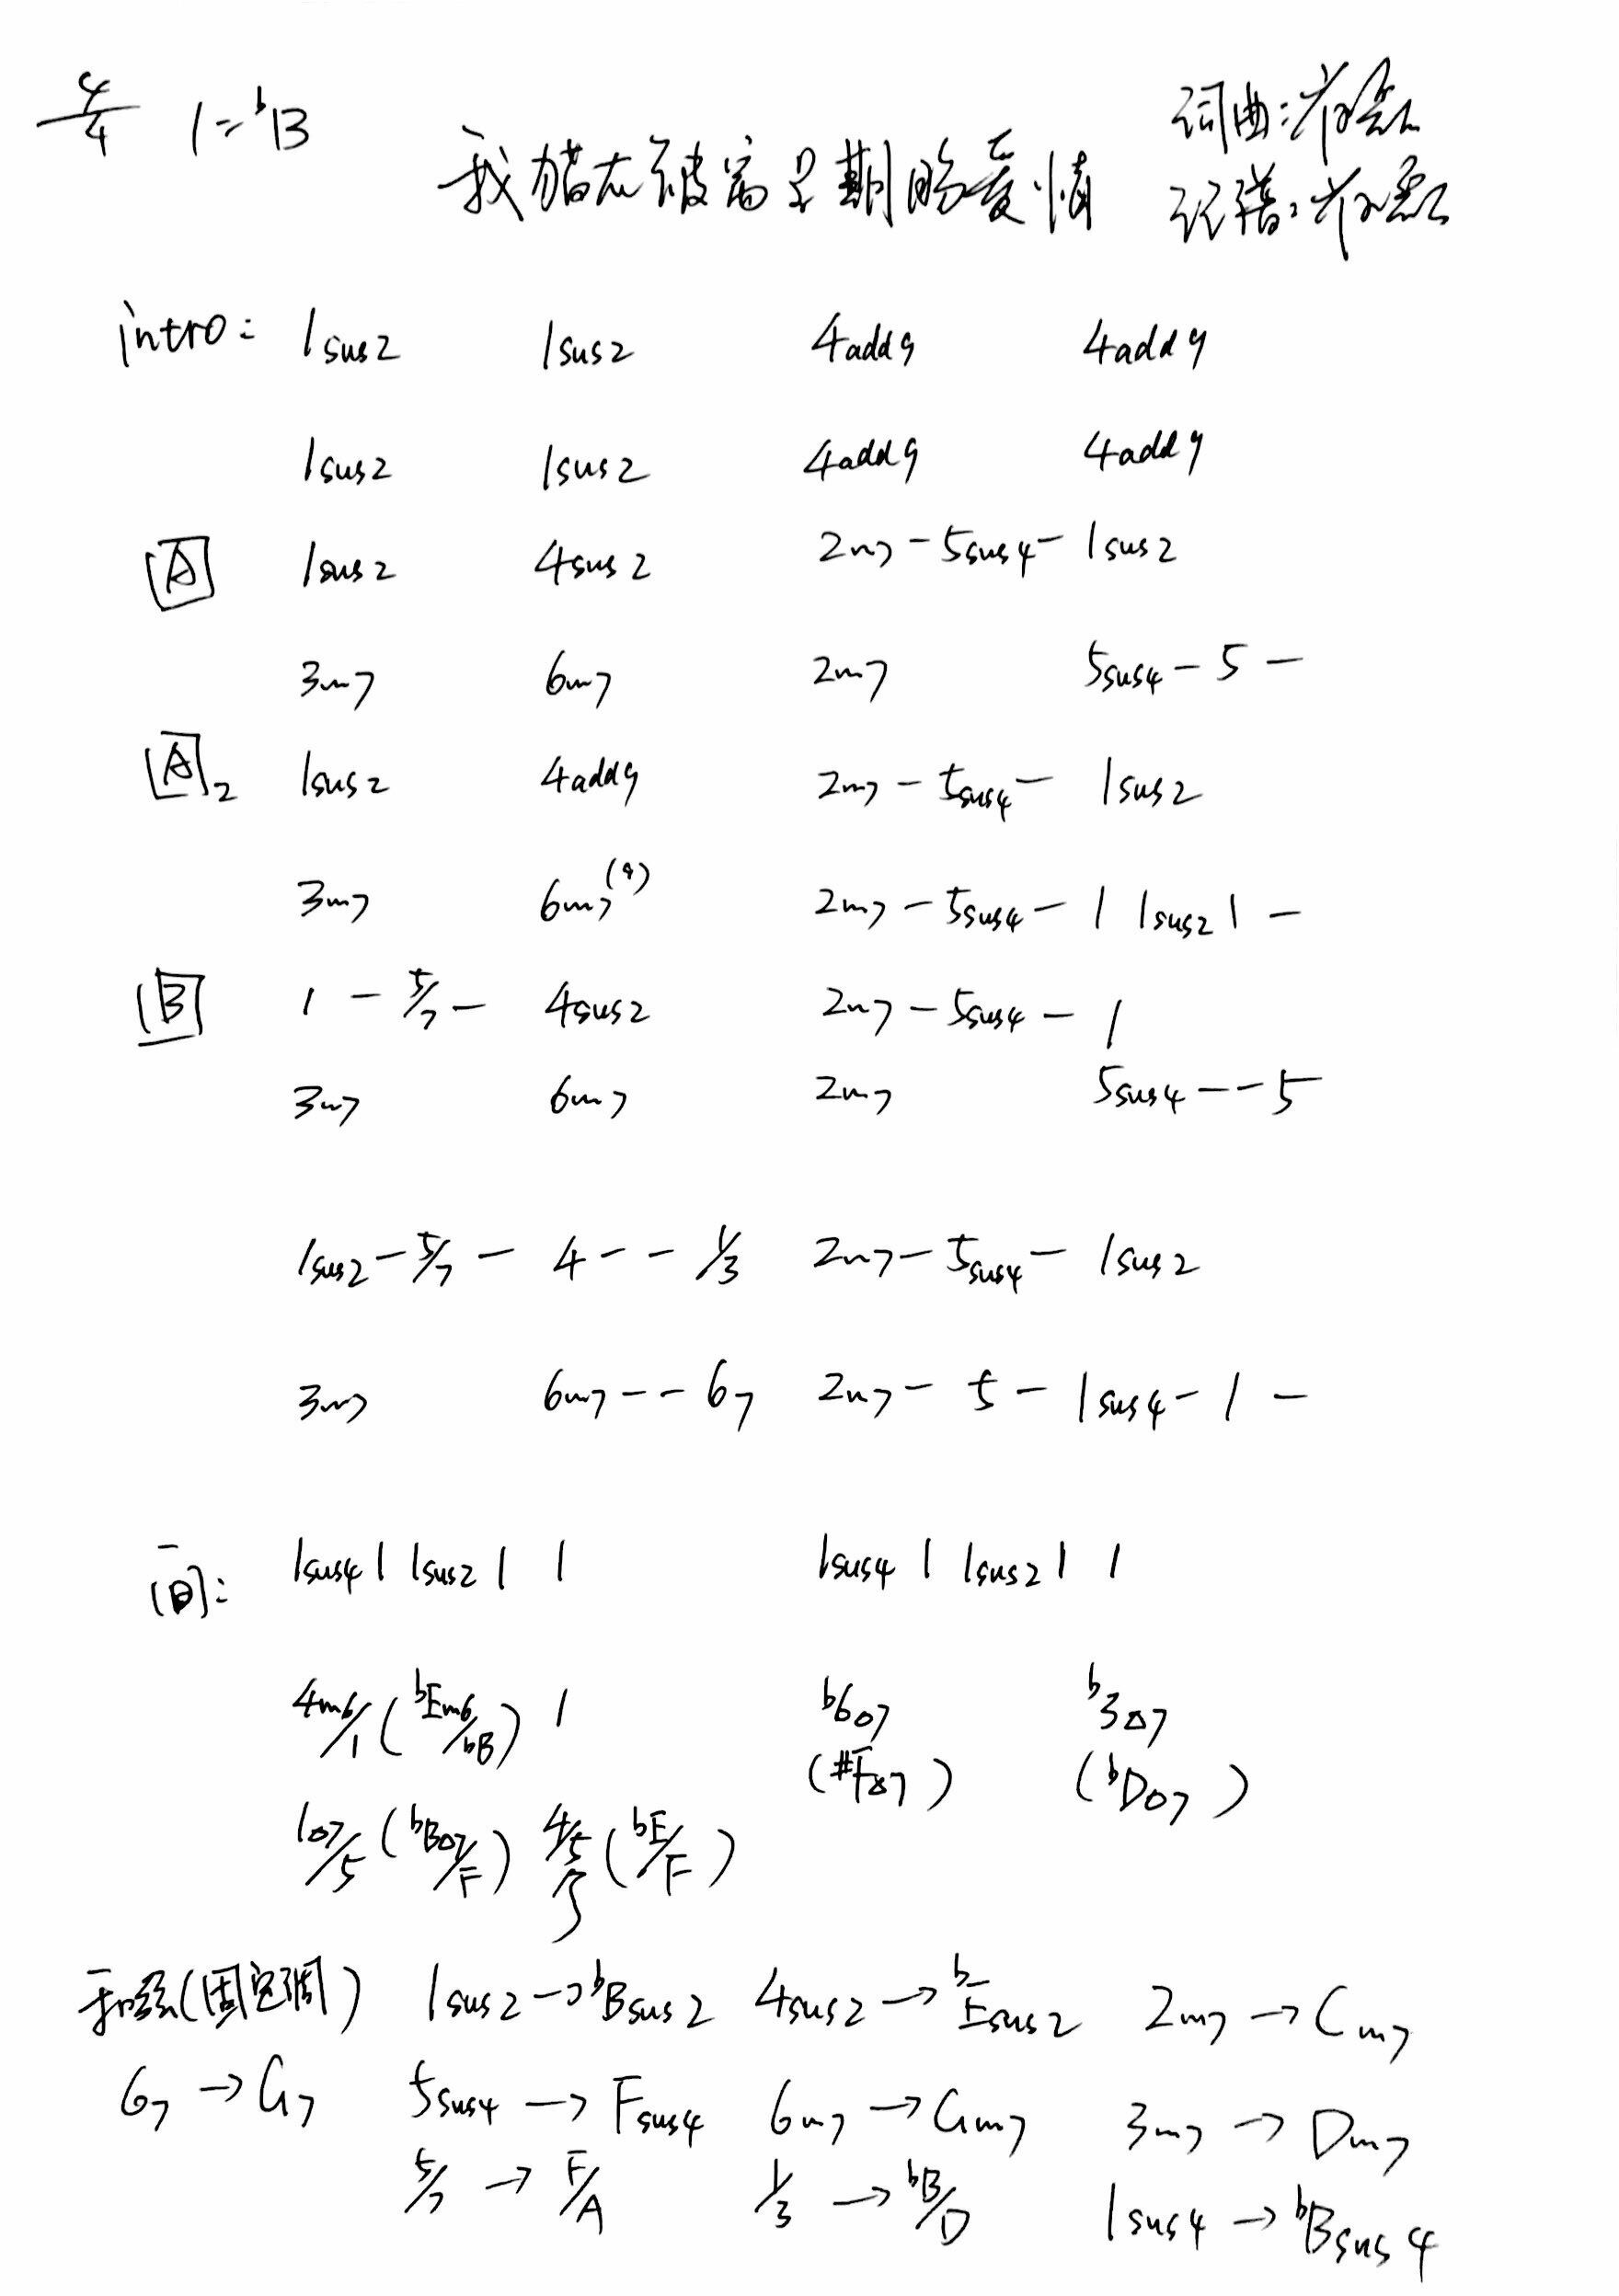 4/4 1=ᵇB
词曲:
我猫在被窝里期盼爱情
记谱:
intro: 1sus2 1sus2 4add9 4add9
1sus2 1sus2 4add9 4add9
A 1sus2 4sus2 2m7 - 5sus4 - 1sus2
3m7 6m7 2m7 5sus4 - 5 -
A2 1sus2 4add9 2m7 - 5sus4 - 1sus2
3m7 6m7(9) 2m7 - 5sus4 - 1 1sus2 1 -
B 1 - 5/7 - 4sus2 2m7 - 5sus4 - 1
3m7 6m7 2m7 5sus4 - - 5
1sus2 - 5/7 - 4 - - 1/3 2m7 - 5sus4 - 1sus2
3m7 6m7 - - 67 2m7 - 5 - 1sus4 - 1 -
间: 1sus4 1 1sus2 1 1 1sus4 1 1sus2 1 1
4m6/1 (ᵇEm6/ᵇB) 1 ᵇ6o7 ᵇ3o7
(#Fo7) (ᵇDo7)
1o7/5 (ᵇBo7/F) 4/5 (ᵇE/F)
和弦(固定调) 1sus2 → ᵇBsus2 4sus2 → ᵇEsus2 2m7 → Cm7
67 → G7 5sus4 → Fsus4 6m7 → Gm7 3m7 → Dm7
5/7 → F/A 1/3 → ᵇB/D 1sus4 → ᵇBsus4